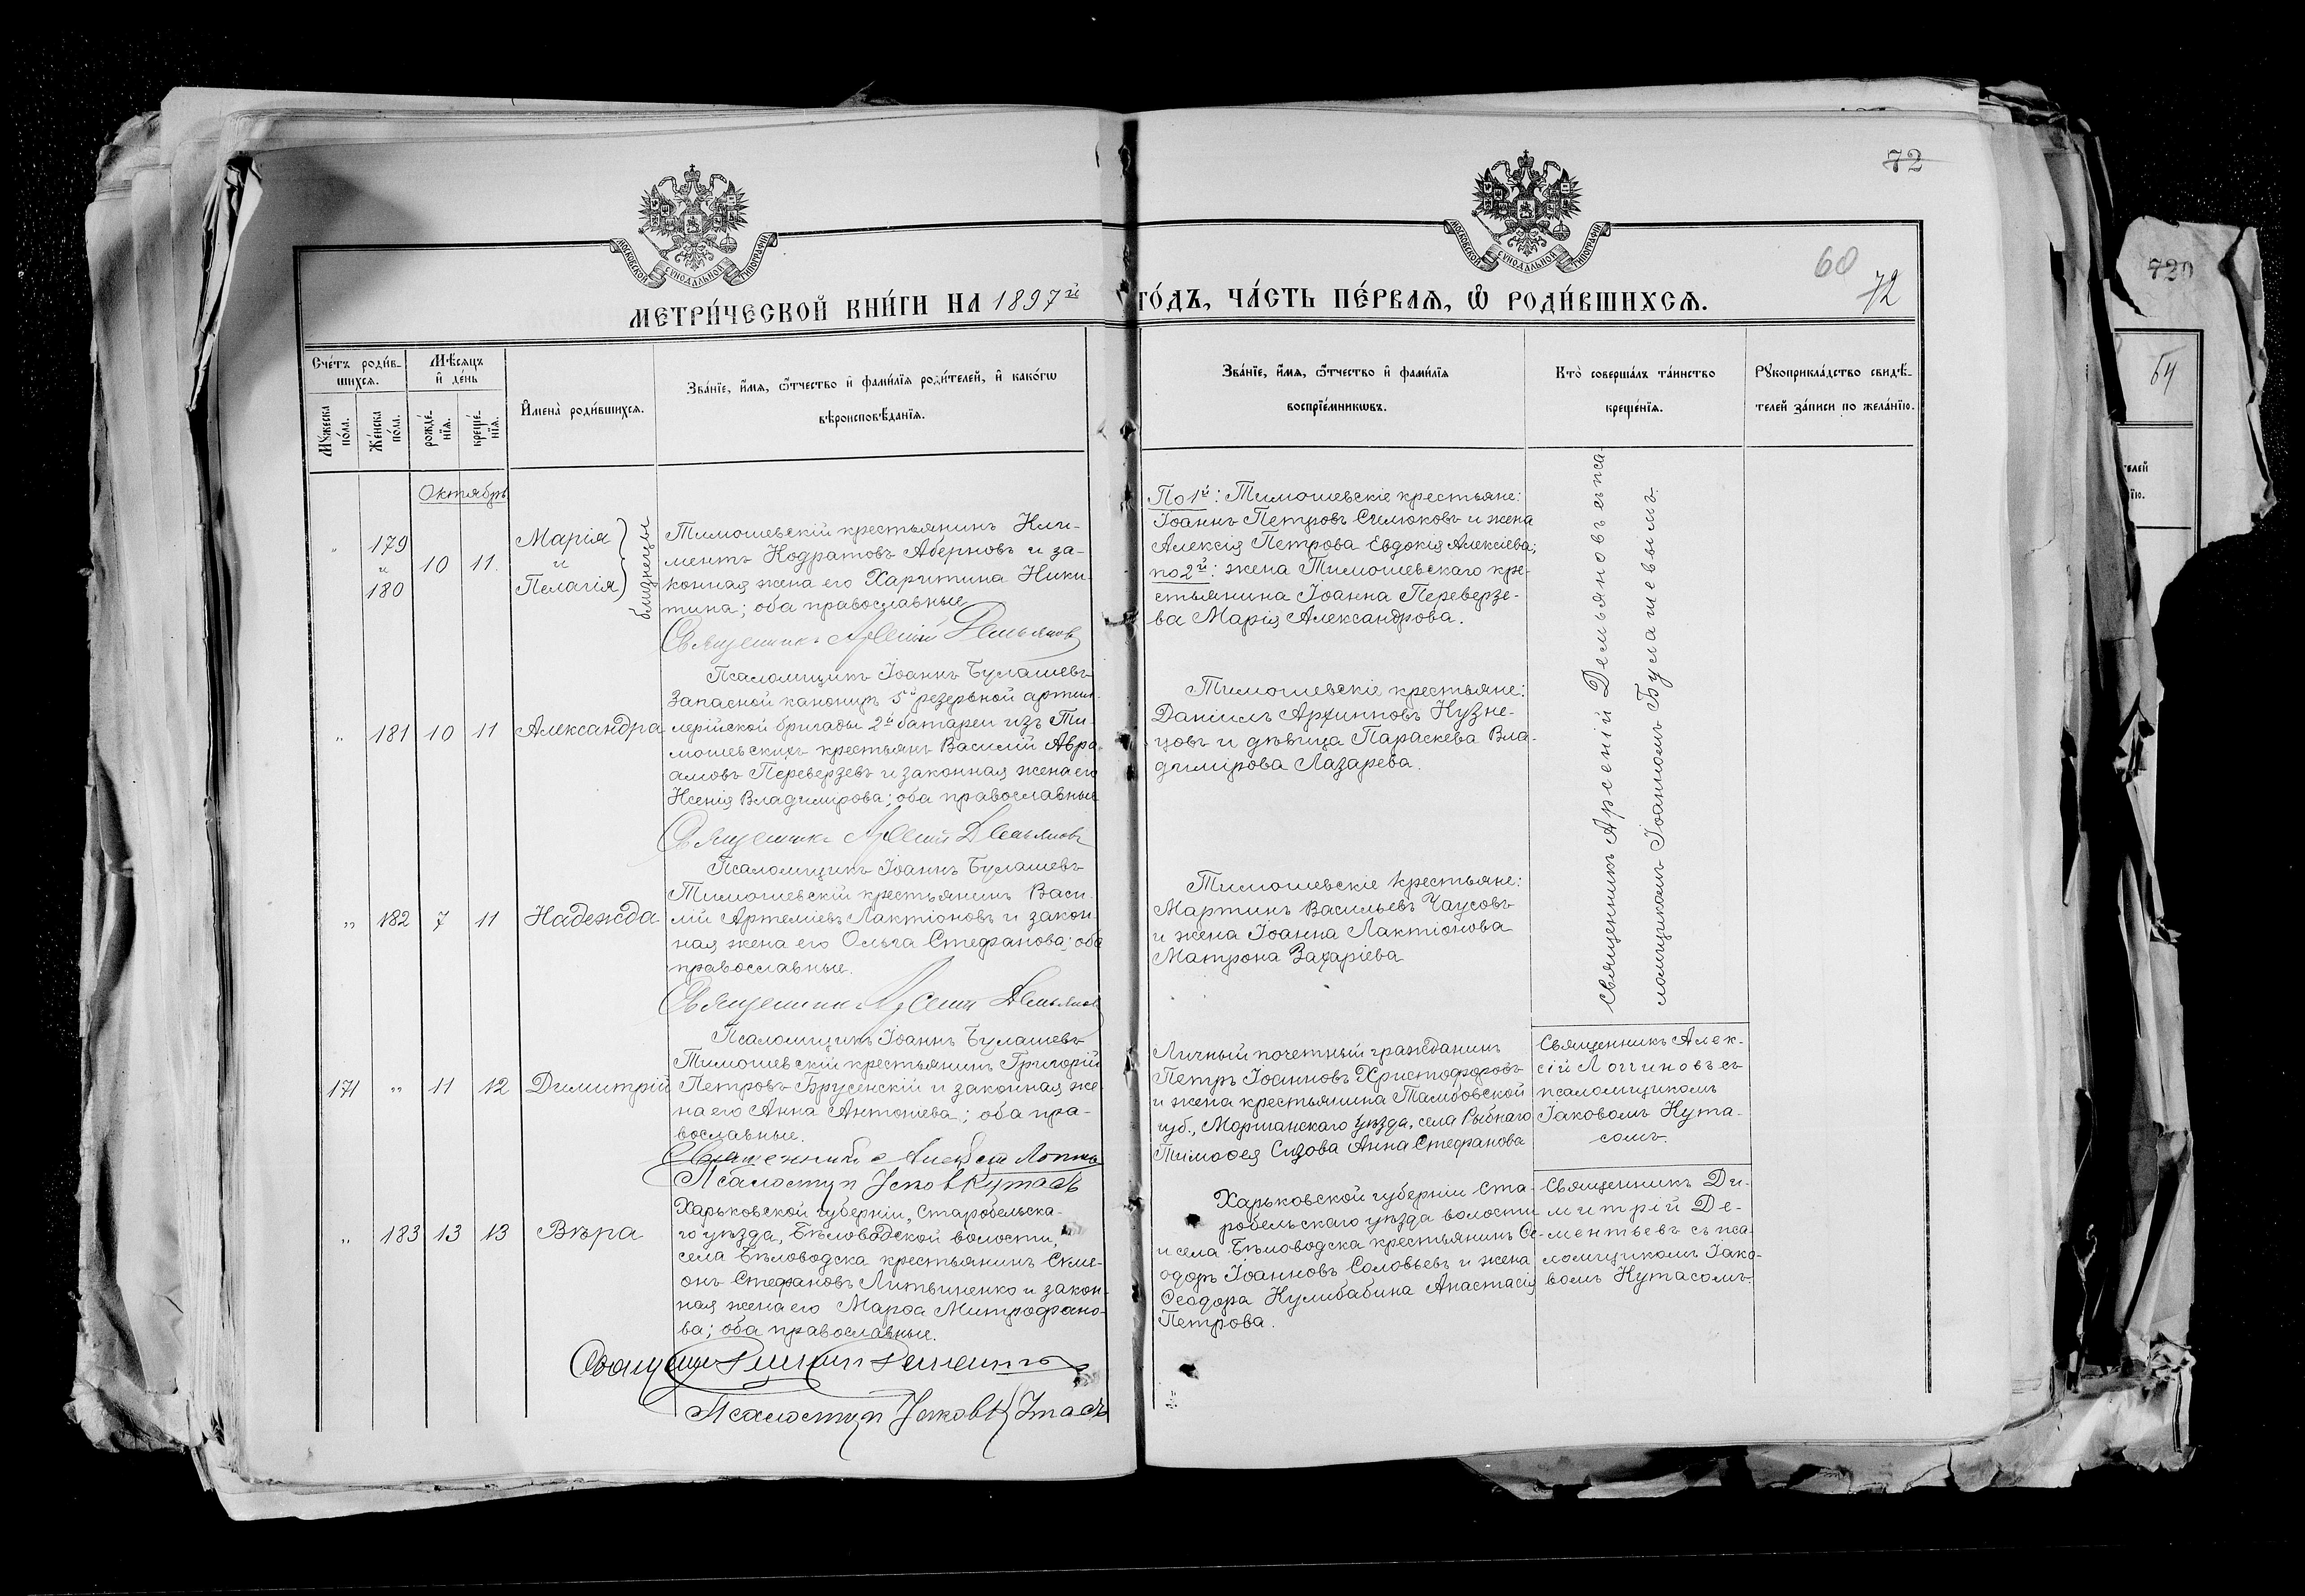 72
МОСКОВСКОЙ СѴНОДАЛЬНОЙ ТИПОГРАФІИ
МОСКОВСКОЙ СѴНОДАЛЬНОЙ ТИПОГРАФІИ
60
72
МЕТРИ́ЧЕСКОЙ КНИ́ГИ НА 1897й ГО́ДЪ, ЧА́СТЬ ПЕ́РВАЯ, Ѡ҆ РОДИ́ВШИХСЯ.
Сче́тъ роди́в-
шихся.
Мѣ́сяцъ
и҆ де́нь
Мꙋ́жеска
по́ла.
Же́нска
по́ла.
рожде́-
нїя.
креще́-
нїя.
И҆мена̀ роди́вшихся.
Зва́нїе, и҆́мя, ѻ҆́тчество и҆ фами́лїя роди́телей, и҆ како́гѡ
вѣроисповѣ́данїя.
Зва́нїе, и҆́мя, ѻ҆́тчество и҆ фами́лїя
воспрїе́мникѡвъ.
Кто̀ соверша́лъ та́инство
креще́нїя.
Рꙋкоприкла́дство свидѣ́-
телей за́писи по жела́нїю.
Октябрь
„ 179 и 180 10 11.
Марія
и
Пелагія
близнецы
Тимошевскій крестьянинъ Кли-
ментъ Кодратовъ Аберновъ и за-
конная жена его Харитина Ники-
тина; оба православные
Священникъ Арсеній Демьяновъ
Псаломщикъ Іоаннъ Булашевъ
По 1й: Тимошевскіе крестьяне:
Іоаннъ Петровъ Силюковъ и жена
Алексія Петрова Евдокія Алексіева;
по 2й: жена Тимошевскаго кре-
стьянина Іоанна Переверзе-
ва Марія Александрова.
Священникъ Арсеній Демьяновъ съ пса-
ломщикомъ Іоанномъ Булашевымъ.
„ 181 10 11 Александра
Запасной канониръ 5й резервной артил-
лерійской бригады 2й батареи изъ Ти-
мошевскихъ крестьянъ Василій Авра-
амовъ Переверзевъ и законная жена его
Ксенія Владимірова; оба православные
Священникъ Арсеній Демьяновъ
Псаломщикъ Іоаннъ Булашевъ
Тимошевскіе крестьяне:
Даніилъ Архипповъ Кузне-
цовъ и дѣвица Параскева Вла-
димірова Лазарева.
„ 182 7 11 Надежда
Тимошевскій крестьянинъ Васи-
лій Артеміевъ Лактіоновъ и закон-
ная жена его Ольга Стефанова; оба
православные.
Священникъ Арсеній Демьяновъ
Псаломщикъ Іоаннъ Булашевъ
Тимошевскіе крестьяне:
Мартинъ Васильевъ Чаусовъ
и жена Іоанна Лактіонова
Матрона Захаріева
171 „ 11 12 Димитрій
Тимошевскій крестьянинъ Григорій
Петровъ Брусенскій и законная же-
на его Анна Антоніева; оба пра-
вославные.
Священникъ Алексій
Псаломщ Іаковъ Кутасъ
Личный почетный гражданинъ
Петръ Іоанновъ Христофоровъ
и жена крестьянина Тамбовской
губ., Моршанскаго уѣзда, села Рыбнаго
Тимоѳея Сизова Анна Стефанова
Священникъ Алек-
сій Логгиновъ съ
псаломщикомъ
Іаковомъ Кута-
сомъ.
„ 183 13 13 Вѣра
Харьковской губерніи, Старобельска-
го уѣзда, Бѣловодской волости,
села Бѣловодска крестьянинъ Симе-
онъ Стефановъ Литвиненко и закон-
ная жена его Марѳа Митрофано-
ва; оба православные.
Псаломщ Іаковъ Кутасъ
Харьковской губерніи Ста-
робельскаго уѣзда волости
и села Бѣловодска крестьянинъ Ѳе-
одоръ Іоанновъ Соловьевъ и жена
Ѳеодора Кулибабина Анастасія
Петрова.
Священникъ Ди-
митрій Де-
ментьевъ съ пса-
ломщикомъ Іако-
вомъ Кутасомъ.
720
64
телей
їю.